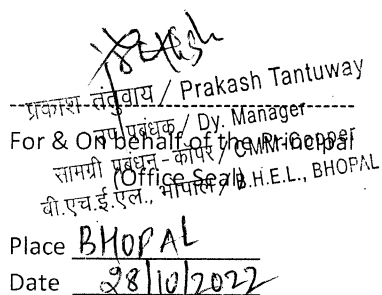 प्रकाश तंतुवाय / Prakash Tantuway
उप प्रबंधक / Dy. Manager
For & On behalf of the Principal
सामग्री प्रबंधन - कॉपर / CMM-Copper
(Office Seal)
बी.एच.ई.एल., भोपाल / B.H.E.L., BHOPAL
Place BHOPAL
Date 28/10/2022